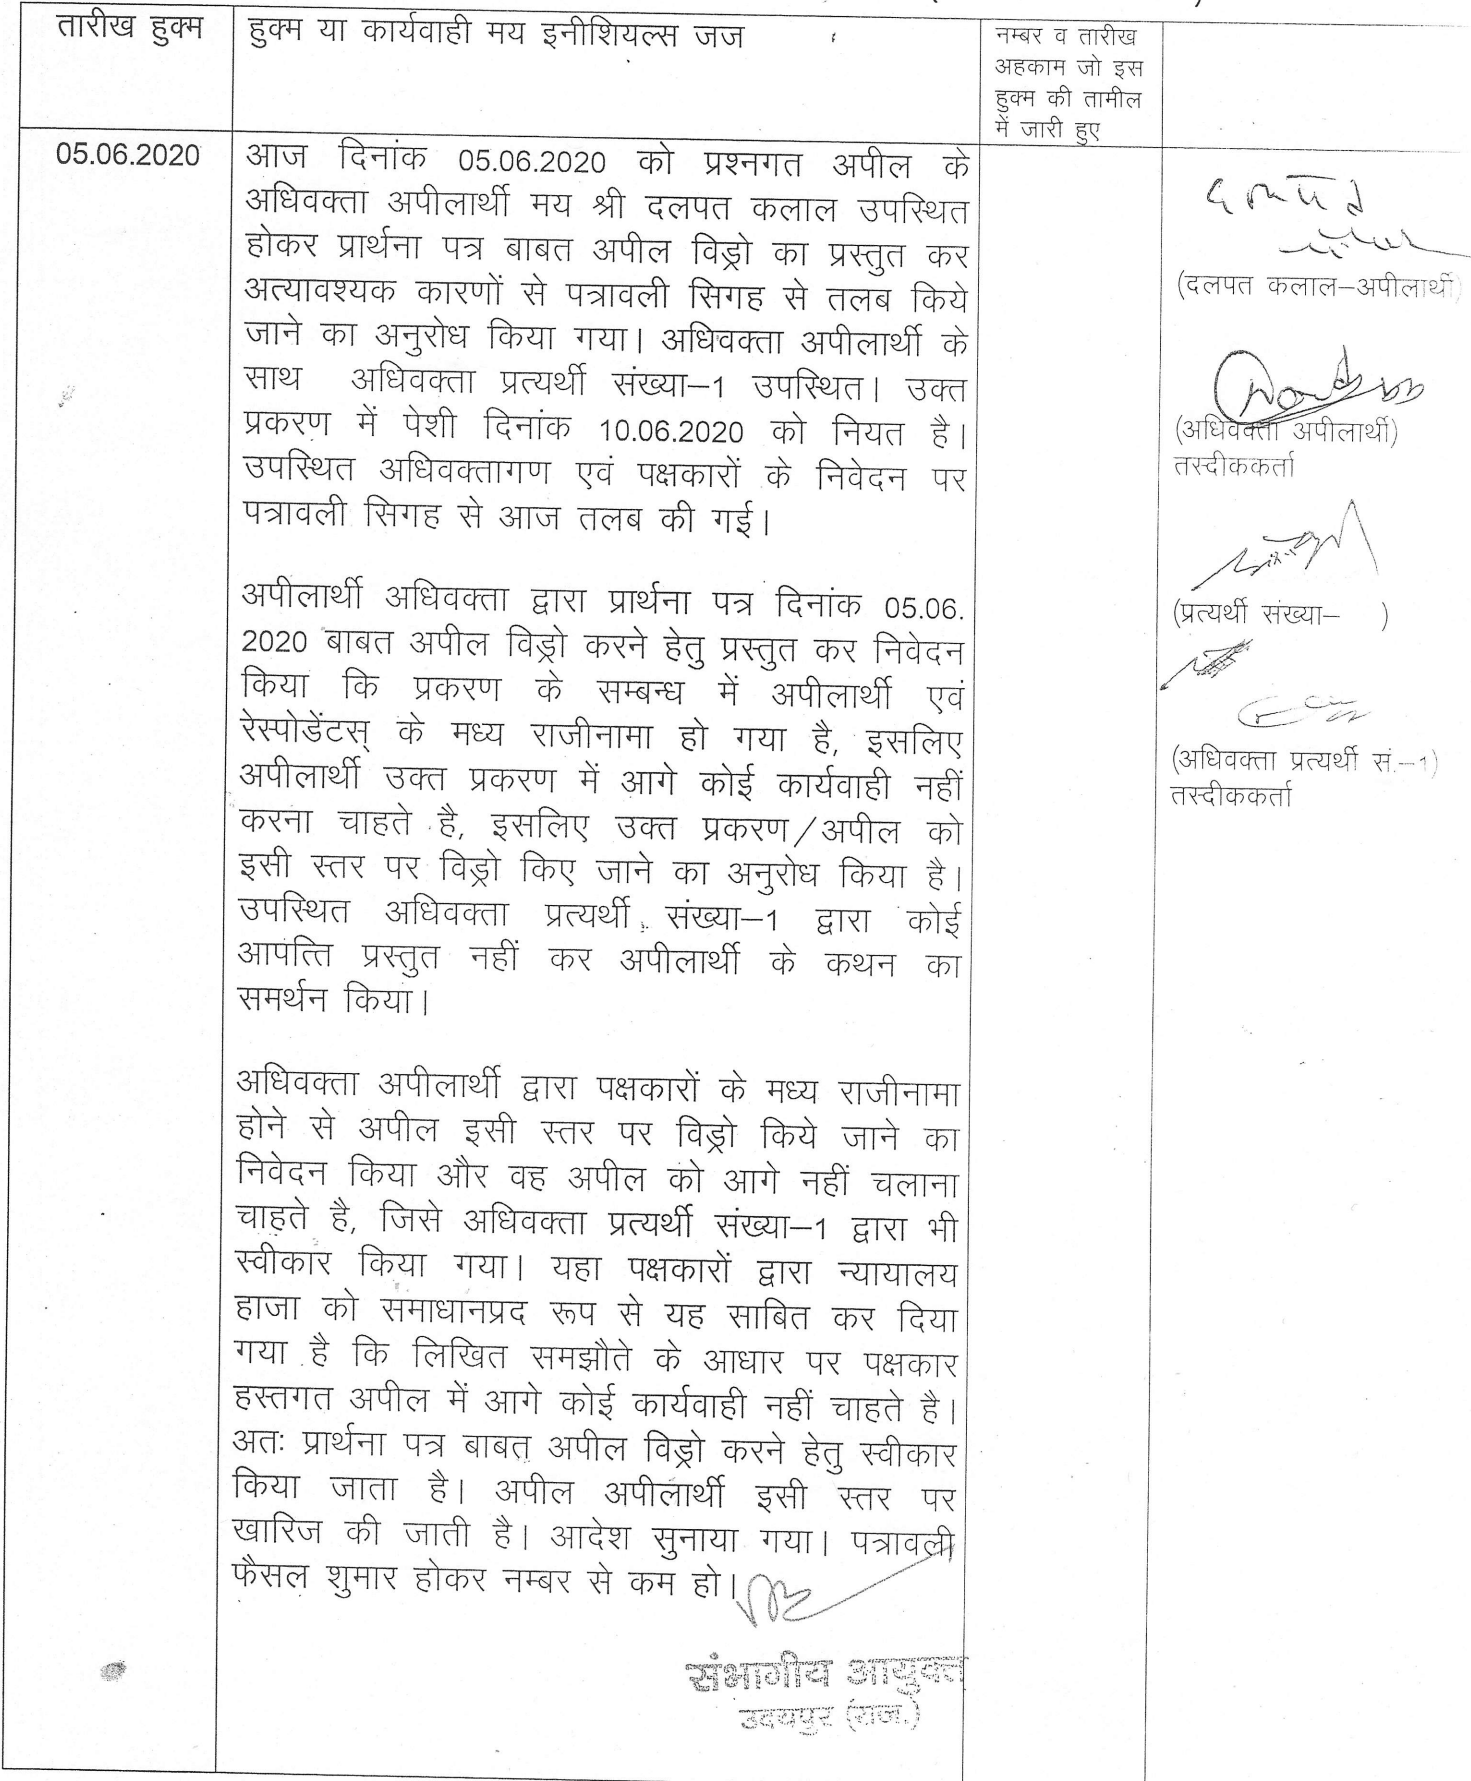 तारीख हुक्म
हुक्म या कार्यवाही मय इनीशियल्स जज
नम्बर व तारीख
अहकाम जो इस
हुक्म की तामील
में जारी हुए
05.06.2020
आज दिनांक 05.06.2020 को प्रश्नगत अपील के
अधिवक्ता अपीलार्थी मय श्री दलपत कलाल उपस्थित
होकर प्रार्थना पत्र बाबत अपील विड्रो का प्रस्तुत कर
अत्यावश्यक कारणों से पत्रावली सिगह से तलब किये
जाने का अनुरोध किया गया। अधिवक्ता अपीलार्थी के
साथ अधिवक्ता प्रत्यर्थी संख्या–1 उपस्थित। उक्त
प्रकरण में पेशी दिनांक 10.06.2020 को नियत है।
उपस्थित अधिवक्तागण एवं पक्षकारों के निवेदन पर
पत्रावली सिगह से आज तलब की गई।
अपीलार्थी अधिवक्ता द्वारा प्रार्थना पत्र दिनांक 05.06.
2020 बाबत अपील विड्रो करने हेतु प्रस्तुत कर निवेदन
किया कि प्रकरण के सम्बन्ध में अपीलार्थी एवं
रेस्पोडेंटस् के मध्य राजीनामा हो गया है, इसलिए
अपीलार्थी उक्त प्रकरण में आगे कोई कार्यवाही नहीं
करना चाहते है, इसलिए उक्त प्रकरण/अपील को
इसी स्तर पर विड्रो किए जाने का अनुरोध किया है।
उपस्थित अधिवक्ता प्रत्यर्थी संख्या–1 द्वारा कोई
आपत्ति प्रस्तुत नहीं कर अपीलार्थी के कथन का
समर्थन किया।
अधिवक्ता अपीलार्थी द्वारा पक्षकारों के मध्य राजीनामा
होने से अपील इसी स्तर पर विड्रो किये जाने का
निवेदन किया और वह अपील को आगे नहीं चलाना
चाहते है, जिसे अधिवक्ता प्रत्यर्थी संख्या–1 द्वारा भी
स्वीकार किया गया। यहा पक्षकारों द्वारा न्यायालय
हाजा को समाधानप्रद रूप से यह साबित कर दिया
गया है कि लिखित समझौते के आधार पर पक्षकार
हस्तगत अपील में आगे कोई कार्यवाही नहीं चाहते है।
अतः प्रार्थना पत्र बाबत अपील विड्रो करने हेतु स्वीकार
किया जाता है। अपील अपीलार्थी इसी स्तर पर
खारिज की जाती है। आदेश सुनाया गया। पत्रावली
फैसल शुमार होकर नम्बर से कम हो।
संभागीय आयुक्त
उदयपुर (राज.)
(दलपत कलाल–अपीलार्थी)
(अधिवक्ता अपीलार्थी)
तस्दीककर्ता
(प्रत्यर्थी संख्या– )
(अधिवक्ता प्रत्यर्थी सं.–1)
तस्दीककर्ता